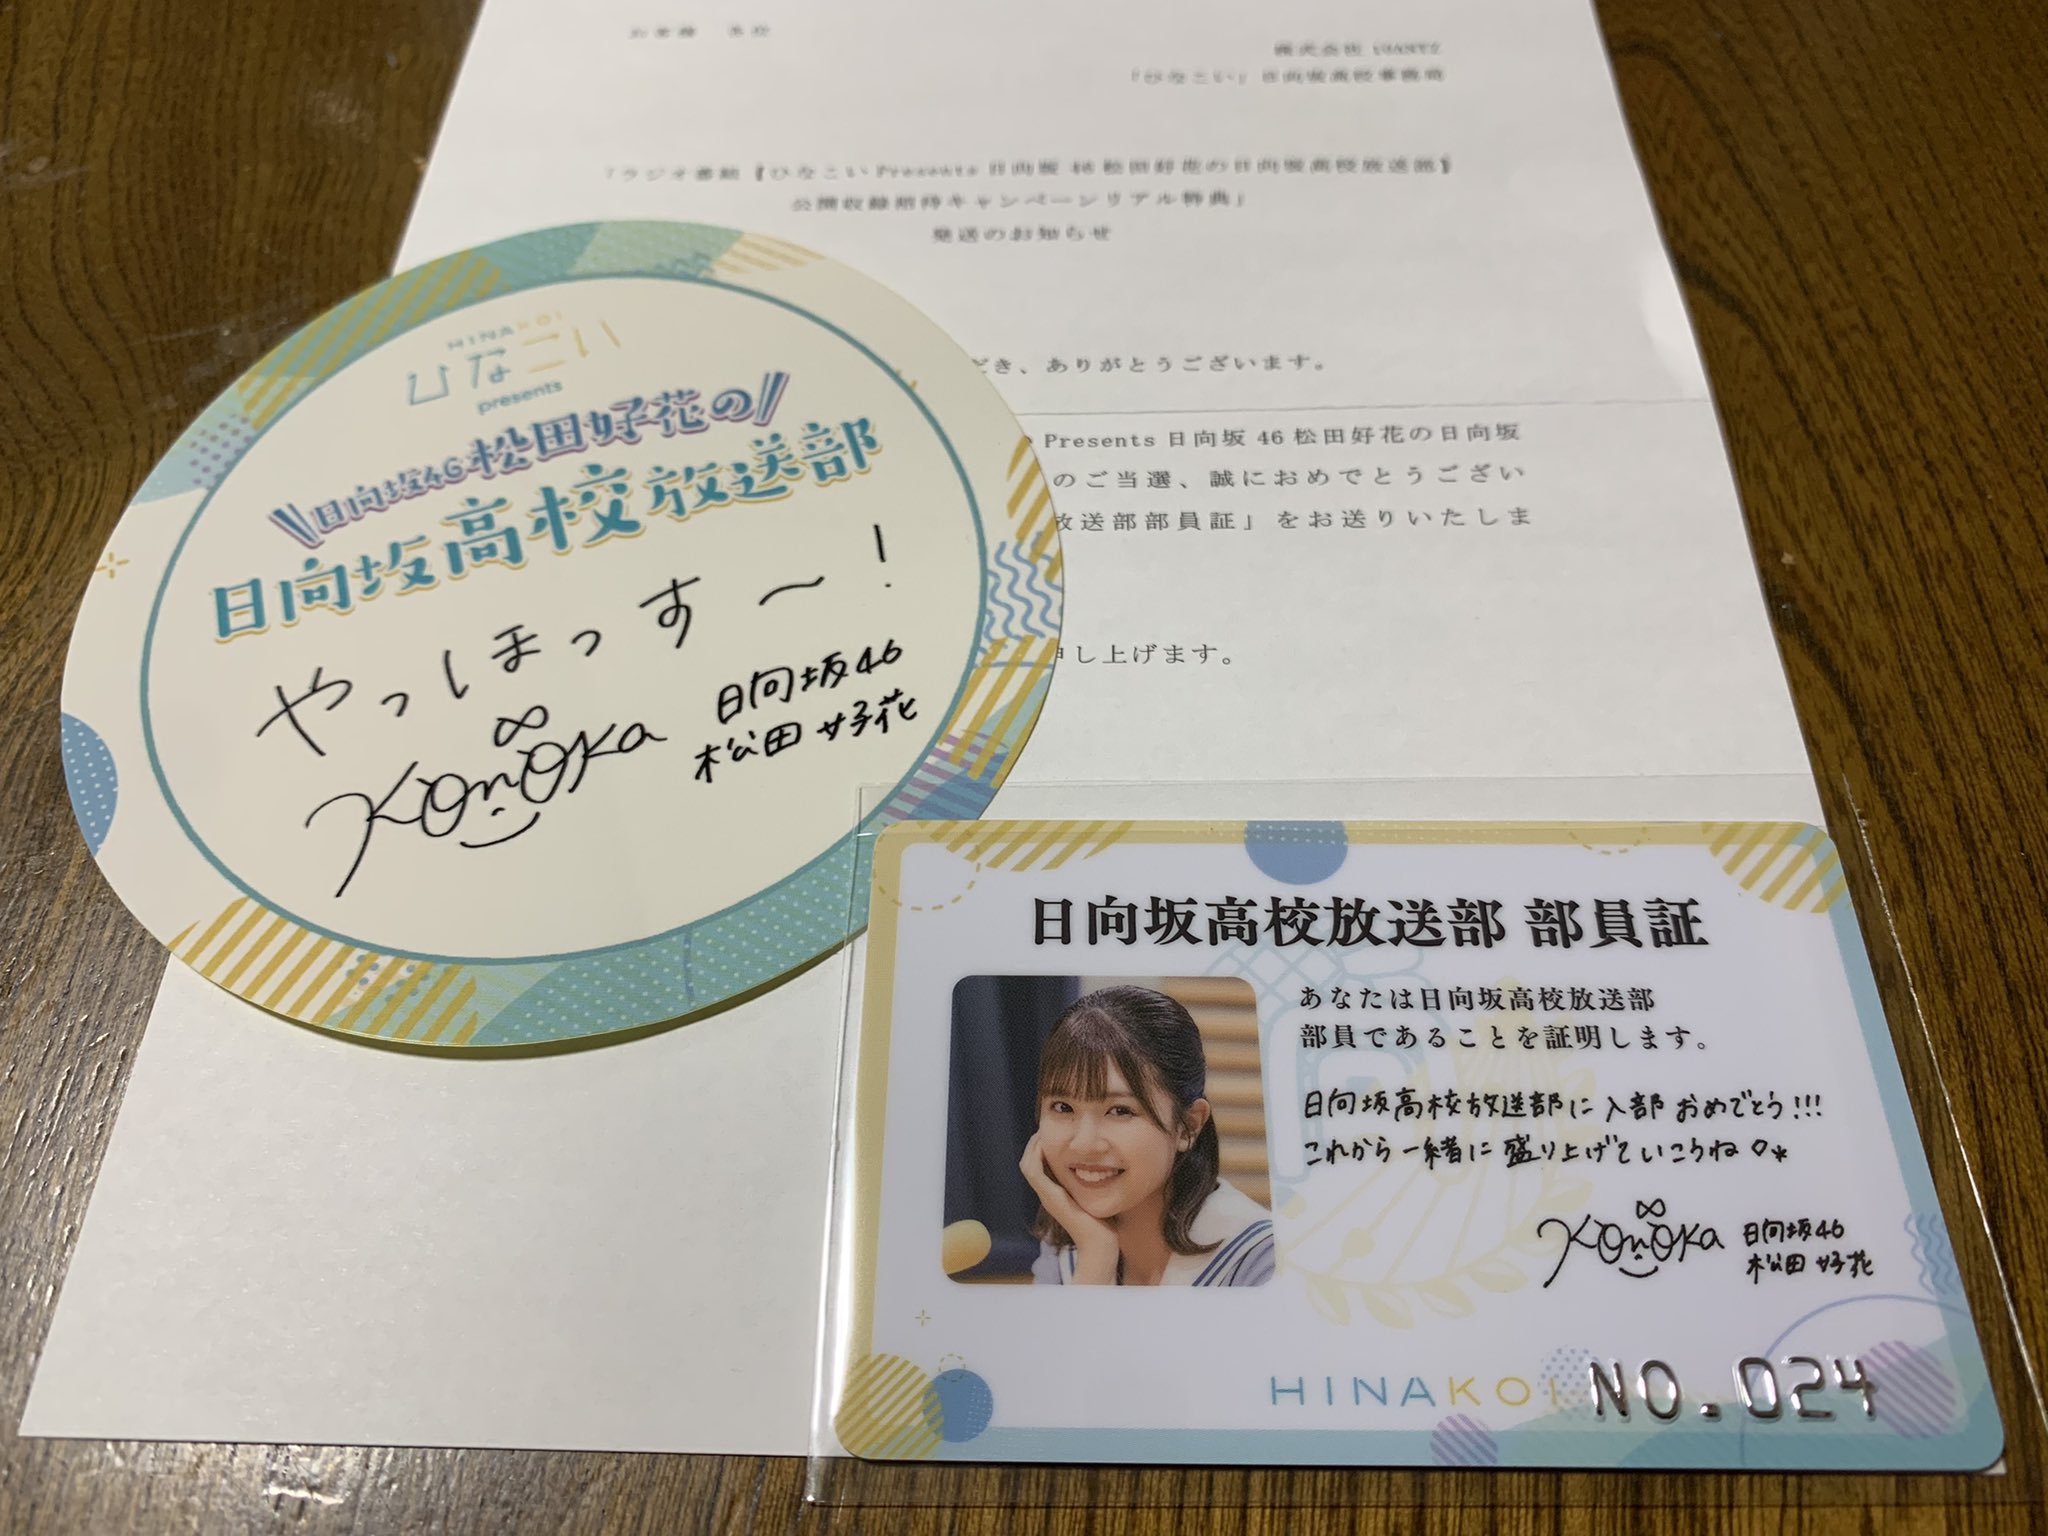 お客様 各位
「ひなこい」日向坂高校事務局
「ラジオ番組【ひなこい Presents 日向坂 46 松田好花の日向坂高校放送部】
公開収録招待キャンペーンリアル特典」
発送のお知らせ
どき、ありがとうございます。
Presents 日向坂 46 松田好花の日向坂
のご当選、誠におめでとうござい
放送部部員証」をお送りいたしま
申し上げます。
HINAKOI
ひなこい
presents
日向坂46 松田好花の
日向坂高校放送部
やっほっす〜!
Konoka
日向坂46
松田好花
日向坂高校放送部 部員証
あなたは日向坂高校放送部
部員であることを証明します。
日向坂高校放送部に入部おめでとう!!!
これから一緒に盛り上げていこうね
Konoka
日向坂46
松田好花
HINAKOI NO.024